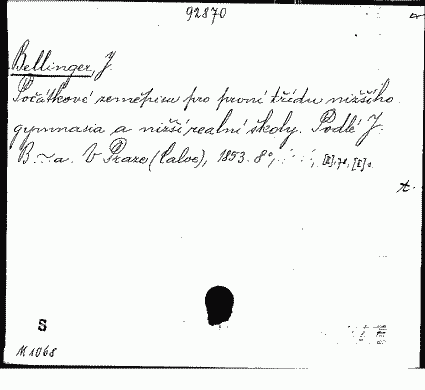 92870
Bellinger, J.
Počátkové zeměpisu pro první třídu nižšího
gymnasia a nižší realní školy. Podlé J.
B~a. V Praze (Calve), 1853. 8°,
t.
S
M 1068